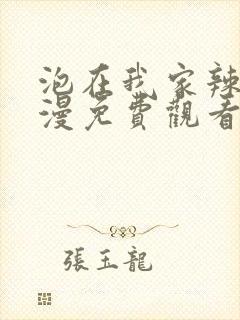 泡在我家辣
漫免費觀看
張玉龍